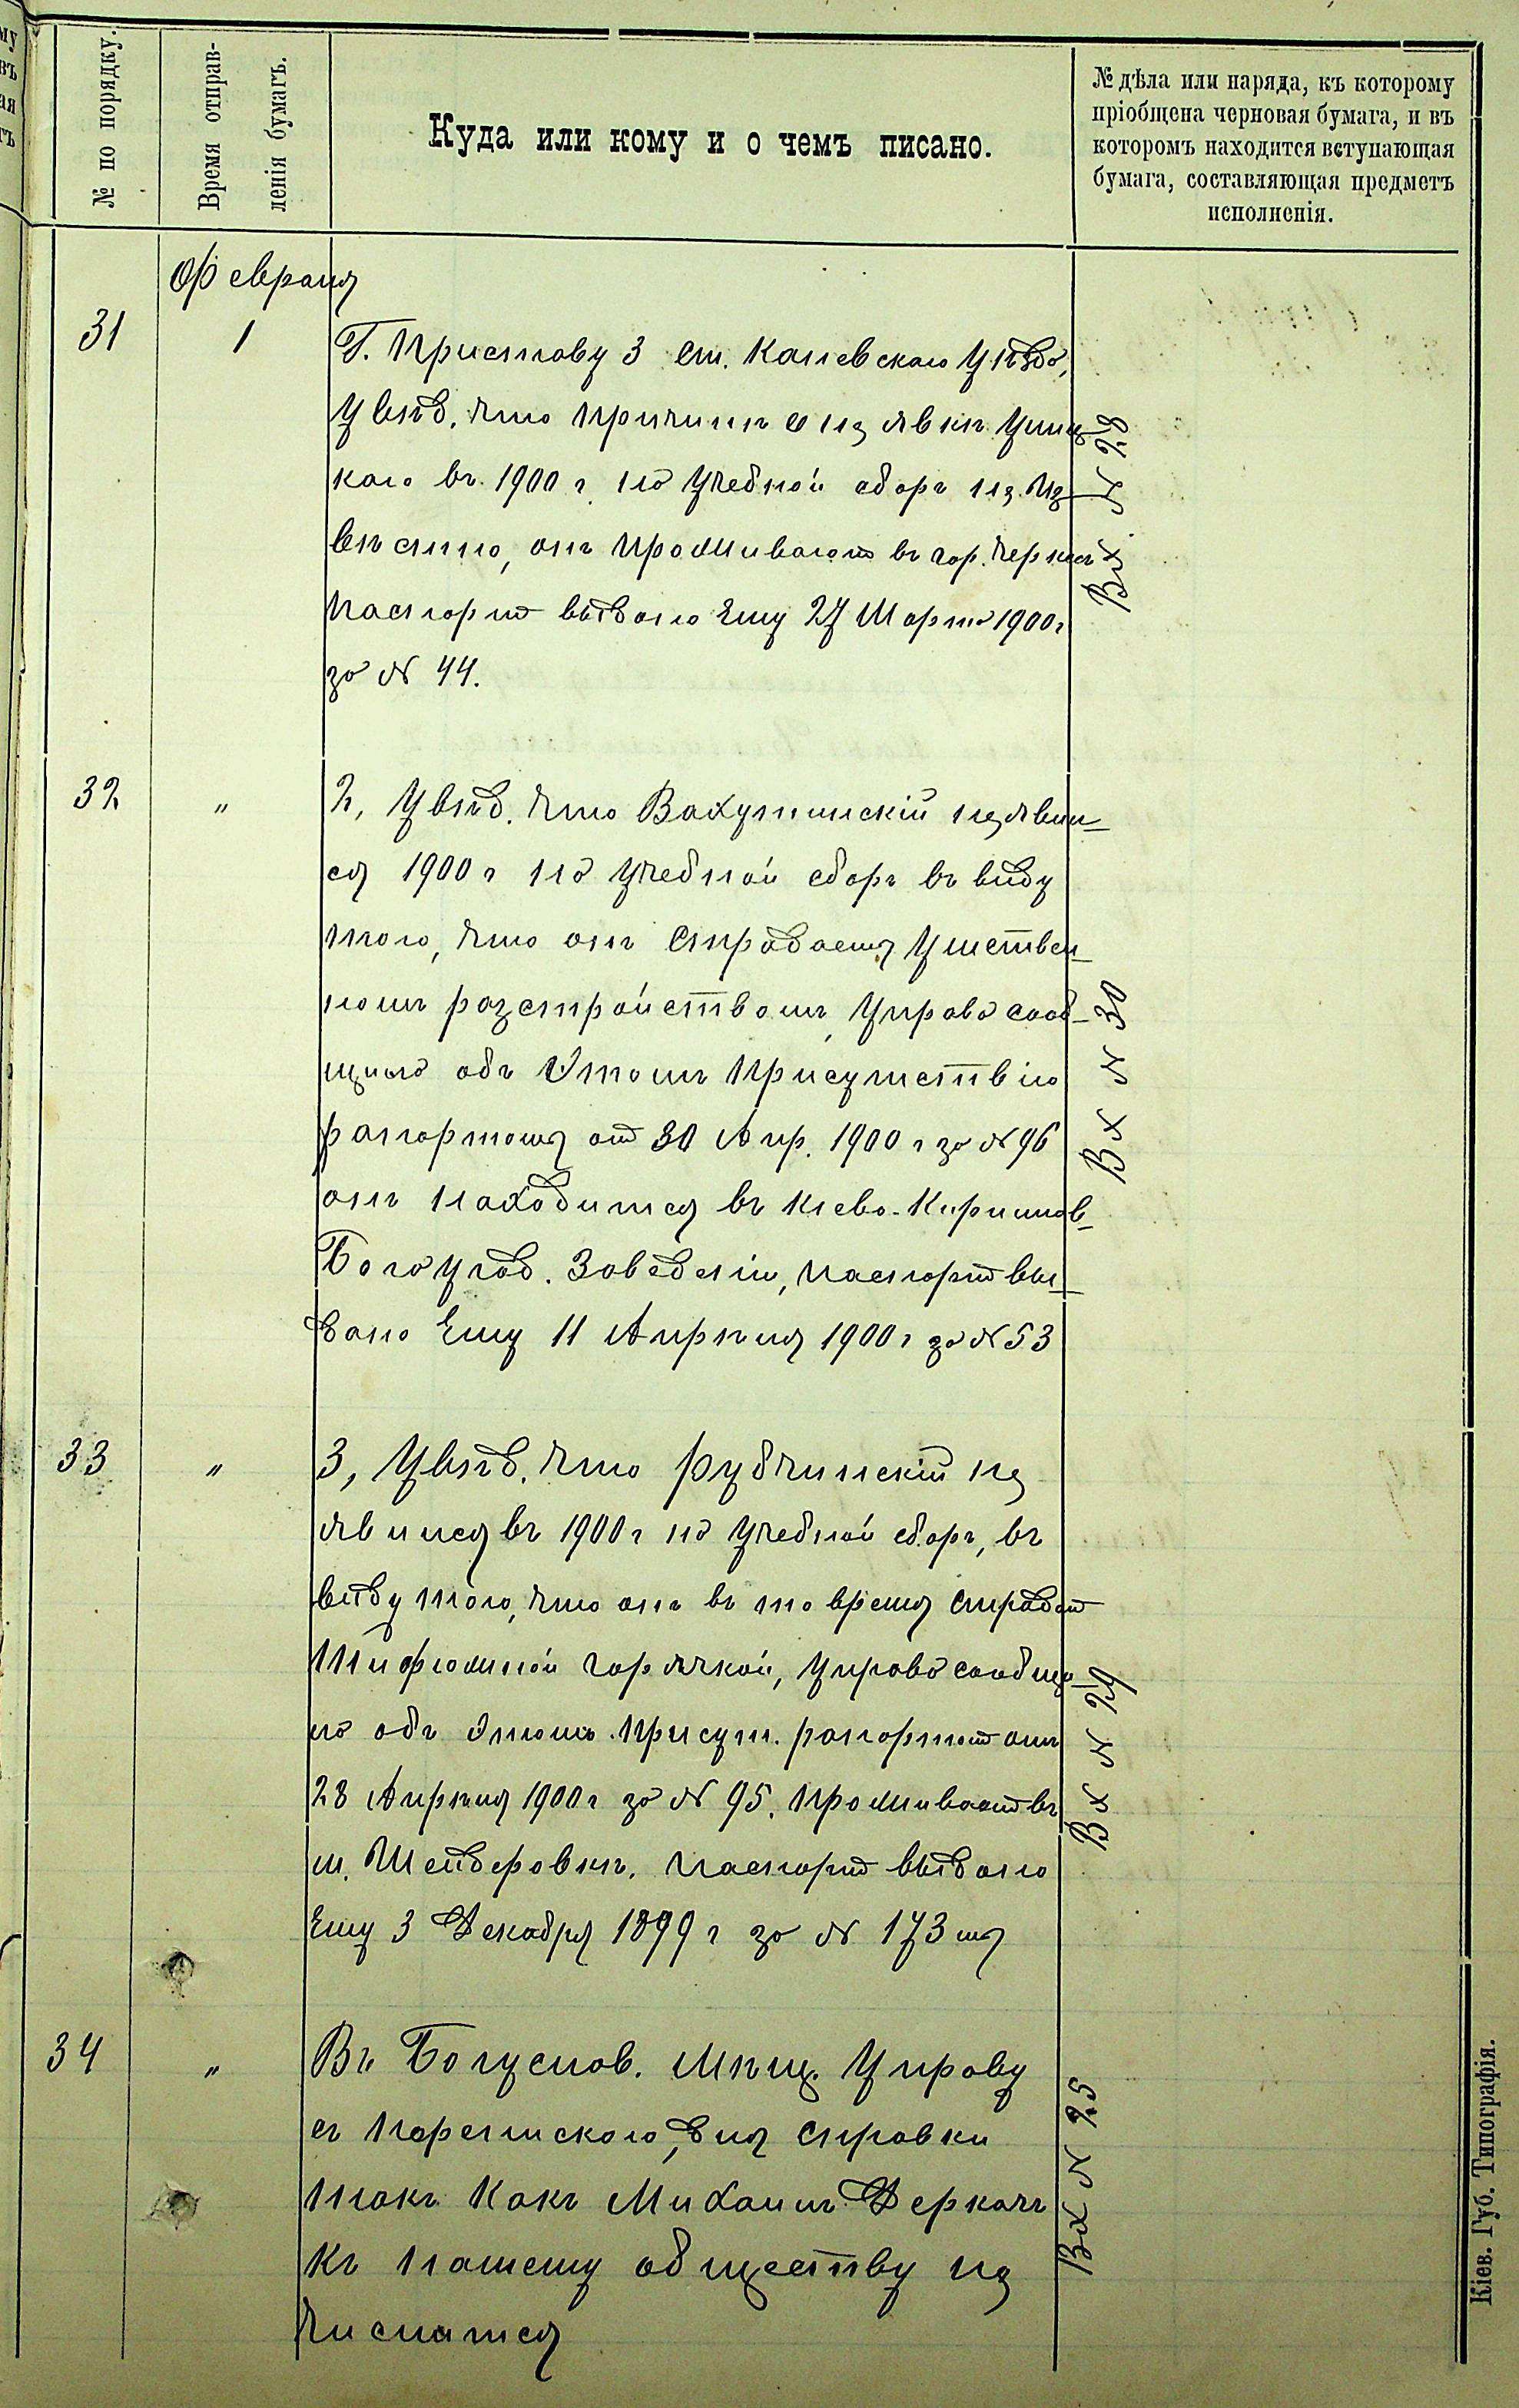 № по порядку.
Время отправ-
ленія бумагъ.
Куда или кому и о чемъ писано.
№ дѣла или наряда, къ которому
пріобщена черновая бумага, и въ
которомъ находится вступающая
бумага, составляющая предметъ
исполненія.
Февраля
31
1
Г. Приставу 3 ст. Каневскаго Уѣзда,
Увѣд. что причина не явки
каго въ 1900 г. на учебной сборъ не из
вѣстно, онъ проживаетъ въ гор. Черкас
паспортъ выдано ему 27 Марта 1900 г
за № 44.
Вх. № 28
32
"
2, Увѣд. что Вахутинскій не яви-
ся 1900 г на учебной сборъ въ виду
того, что онъ страдаетъ умствен-
номъ разстройствомъ, Управа сооб-
щила объ этомъ присутствію
рапортомъ от 30 Апр. 1900 г за № 96
онъ находится въ Кіево-Кирилов-
Богоугод. Заведеніи, паспортъ вы-
дано ему 11 Апрѣля 1900 г за № 53
Вх № 30
33
"
3, Увѣд. что Рубчинскій не
явился въ 1900 г на учебной сборъ, въ
виду того, что онъ въ то время страдал
тифозной горячкой, управа сообщи
ла объ этомъ присут. рапортом отъ
28 Апрѣля 1900 г за № 95. Проживает въ
м. Шендеровкѣ. паспортъ выдано
ему 3 Декабря 1899 г за № 173 мъ
Вх № 29
34
"
Въ Богуслов. Мѣщ. Управу
съ перепискою, для справки
такъ какъ Михаилъ Деркачъ
къ нашему обществу не
числится
Вх № 25
Кіев. Губ. Типографія.